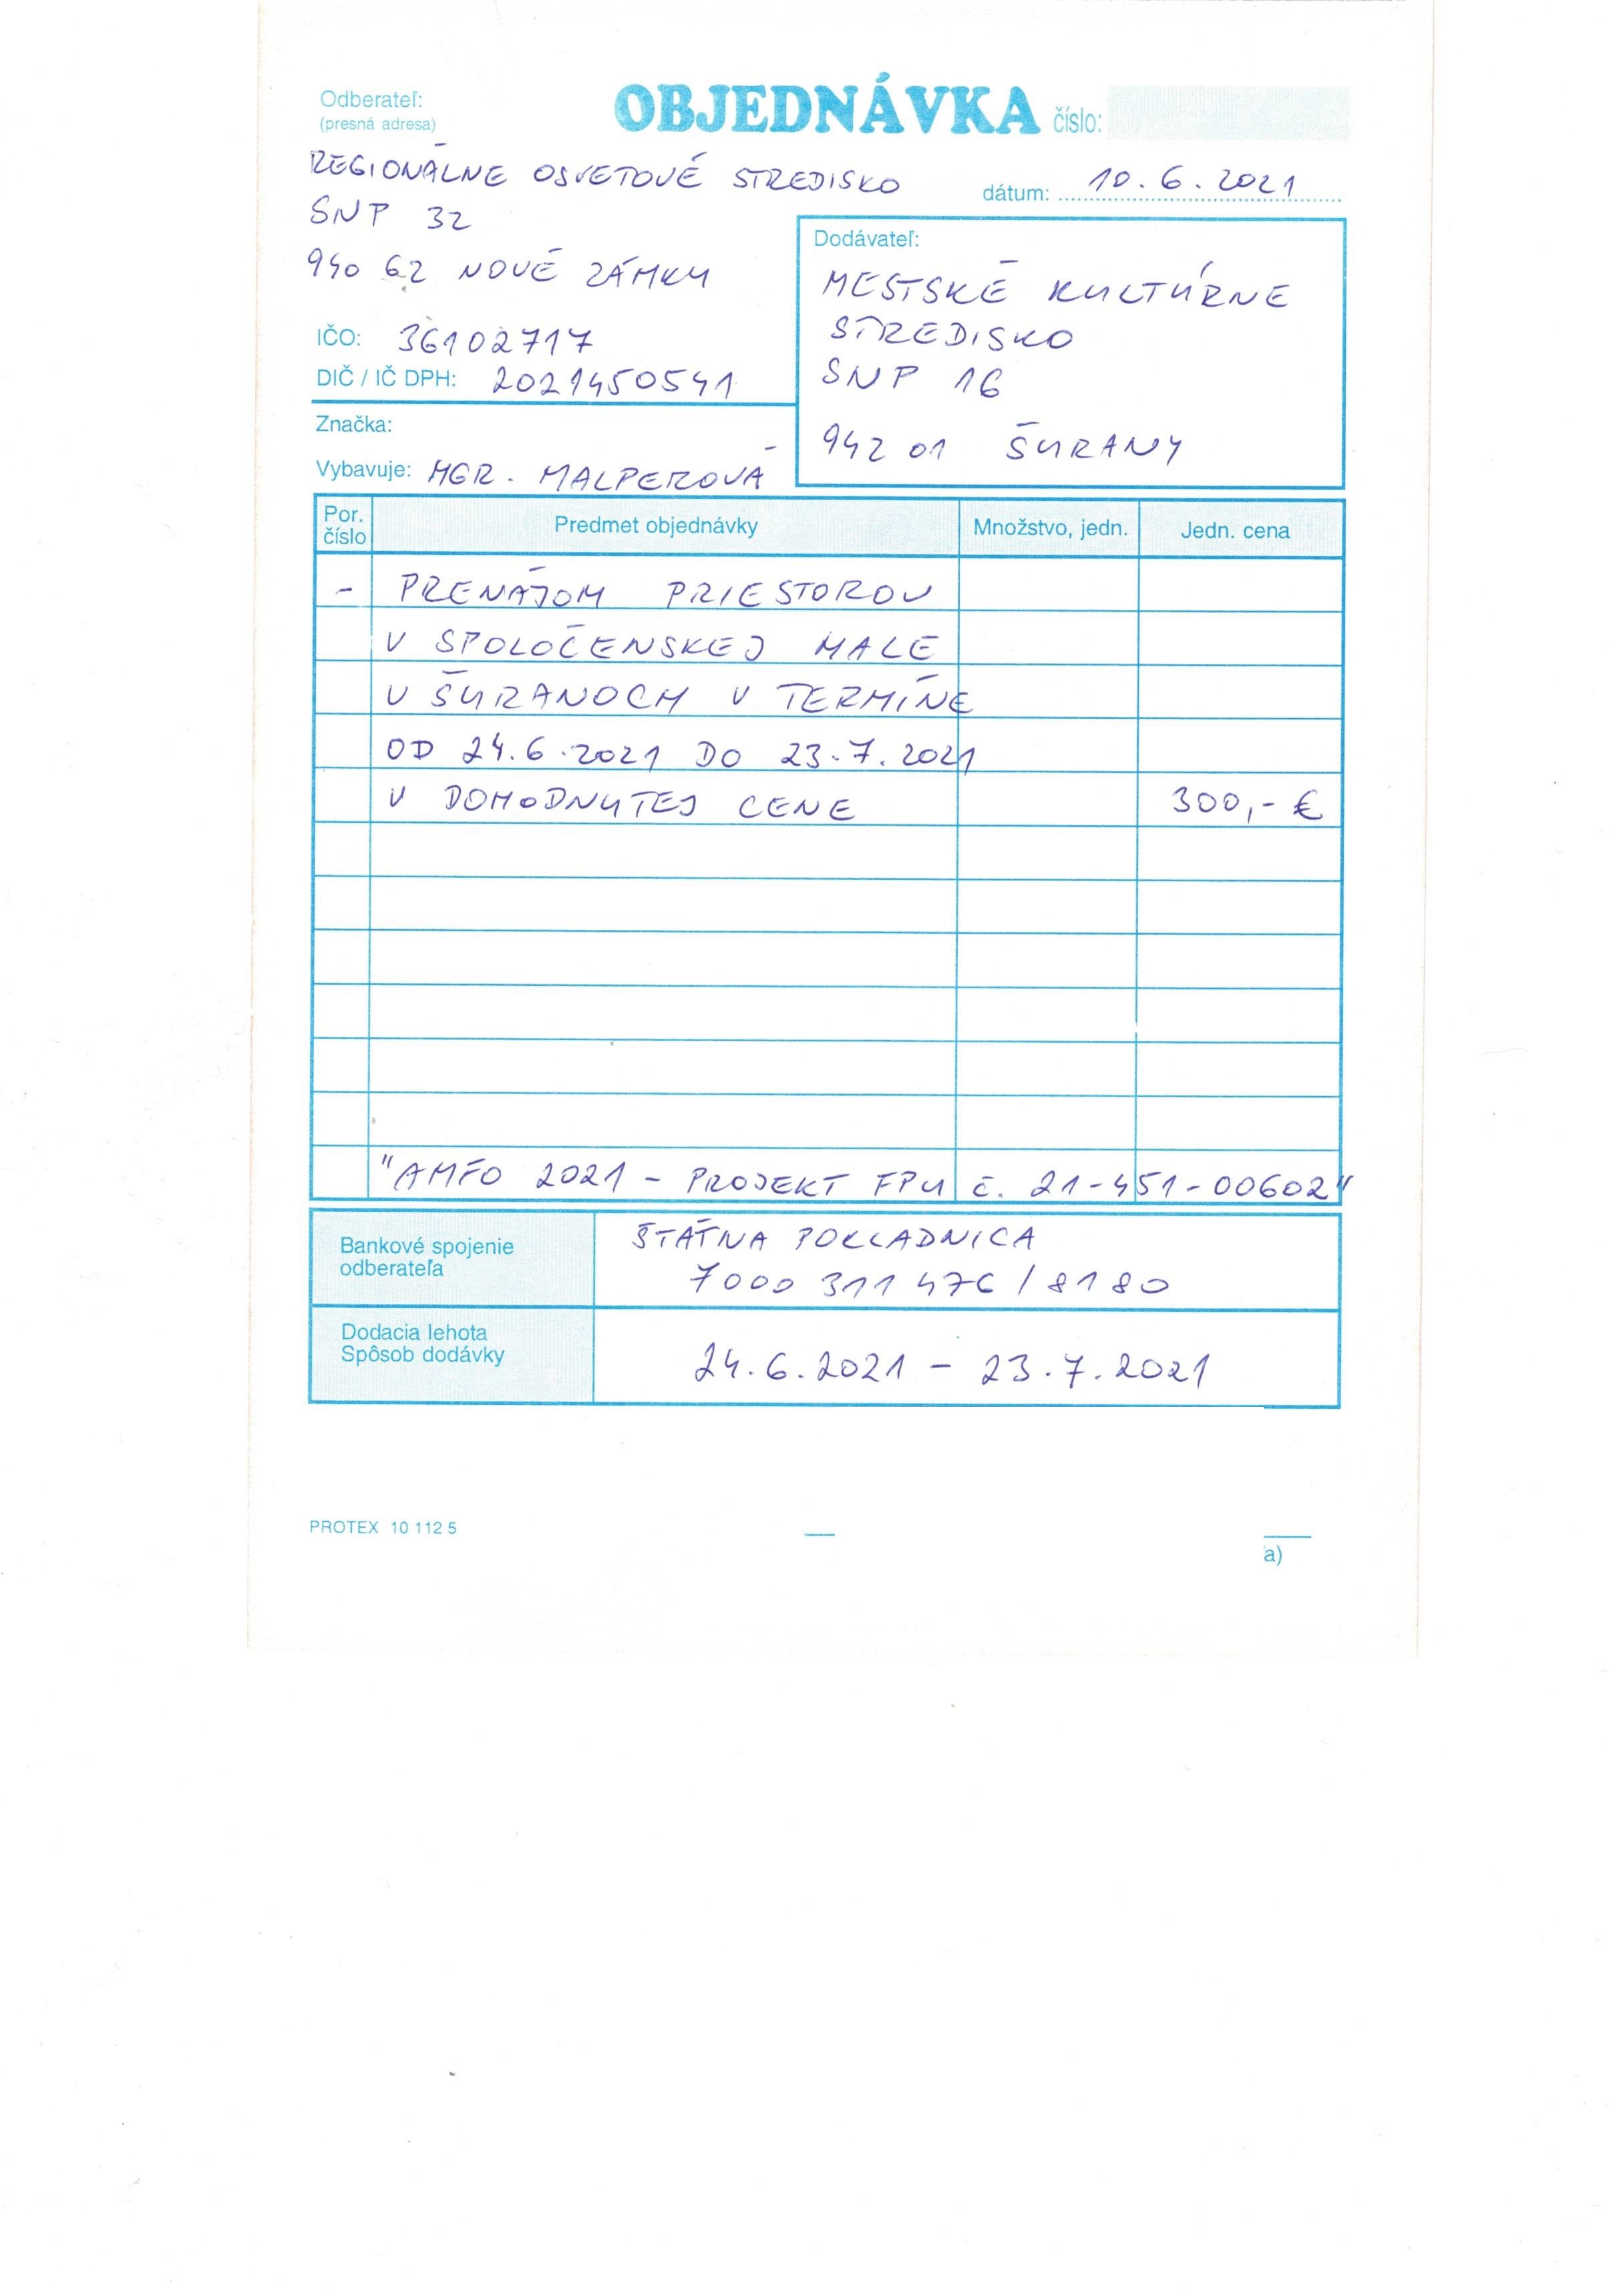 Odberateľ:
(presná adresa)
OBJEDNÁVKA číslo:
REGIONÁLNE OSVETOVÉ STREDISKO
dátum: 10.6.2021
SNP 32
940 62 NOVÉ ZÁMKY
IČO: 36102717
DIČ / IČ DPH: 2021450541
Dodávateľ:
MESTSKÉ KULTÚRNE
STREDISKO
SNP 16
942 01 ŠURANY
Značka:
Vybavuje: MGR. MALPEROVÁ
Por. číslo Predmet objednávky Množstvo, jedn. Jedn. cena
- PRENÁJOM PRIESTOROV
V SPOLOČENSKEJ HALE
V ŠURANOCH V TERMÍNE
OD 24.6.2021 DO 23.7.2021
V DOHODNUTEJ CENE 300,- €
"AMFO 2021 - PROJEKT FPU č. 21-451-00602"
Bankové spojenie
odberateľa
ŠTÁTNA POKLADNICA
7000 311 476 / 8180
Dodacia lehota
Spôsob dodávky
24.6.2021 - 23.7.2021
PROTEX 10 112 5
a)